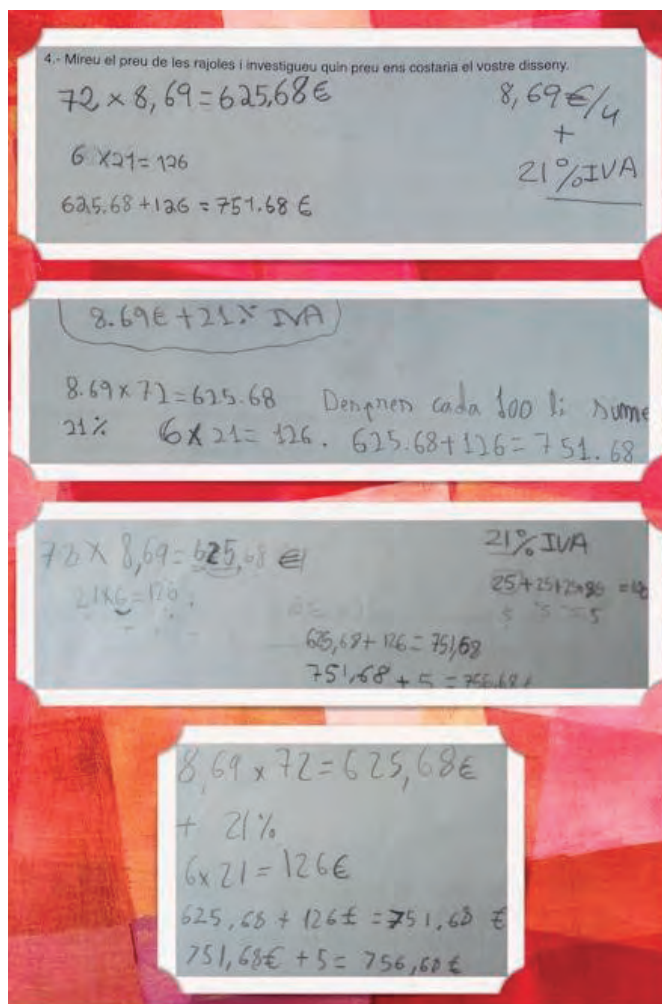 4.- Mireu el preu de les rajoles i investigueu quin preu ens costaria el vostre disseny.
72 x 8,69 = 625,68 €
8,69 €/u
+
21% IVA
6 x 21 = 126
625.68 + 126 = 751.68 €
8.69€ + 21% IVA
8.69 x 72 = 625.68 Despres cada 100 li sume
21% 6 x 21 = 126. 625.68 + 126 = 751.68
72 x 8,69 = 625,68 €
21% IVA
21x6 = 126
625,68 + 126 = 751,68
751,68 + 5 = 756,68
8,69 x 72 = 625,68€
+ 21%
6x21 = 126€
625,68 + 126€ = 751,68 €
751,68€ + 5 = 756,68€